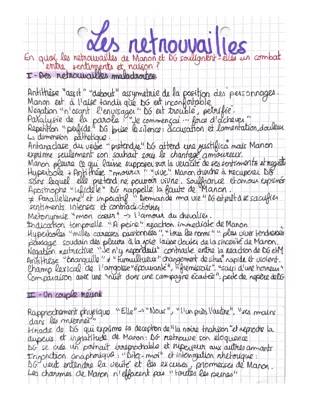 Les retrouvailles
En quoi les retrouvailles de Manon et DG soulignent-elles un combat
entre sentiments et raison ?
I - Des retrouvailles maladroites
Antithèse "assit" "debout" asymétrie de la position des personnages.
Manon est à l'aise tandis que DG est inconfortable
Négation "n'osant l'envisager" DG est troublé, pétrifié.
Paralysie de la parole "Je commençai ... pour d'achever"
Répétition "perfide" DG brise le silence: accusation et lamentation, douleur
dimension pathétique.
Antanaclase du verbe "prétendre" DG attend une justification mais Manon
exprime seulement son souhait sous le chantage amoureux.
Manon pleure ce qui laisse supposer de la véracité de ses sentiments et regrets
Hyperbole + Antithèse "mourir" "vie" Manon cherche à récupérer DG
sans lequel elle prétend ne pouvoir vivre. Souffrance et amour exprimés
Apostrophe "infidèle" DG rappelle la faute de Manon.
Parallélisme et impératif "Demande ma vie" DG est prêt à se sacrifier
sentiments intenses et contradictoires
Métonymie "mon cœur" → l'amour du chevalier.
Indication temporelle "A peine" réaction immédiate de Manon
Hyperboles "mille caresses passionnées", "tous les noms"
passage soudain des pleurs à la joie laisse douter de la sincérité de Manon.
Négation restrictive "Je n'y répondais" contraste entre la réaction de DG et M
Antithèse "tranquille" ≠ "tumultueux" changement de situation rapide et violent.
Champ lexical de l'angoisse "épouvanté", "frémissais", "saisi d'une horreur"
Comparaison avec une "nuit dans une campagne écartée", perte de repère
II - Un couple réuni
Rapprochement physique "Elle" → "Nous", "l'un près l'autre", "ses mains
dans les miennes"
Tirade de DG qui exprime sa déception de "la noire trahison" et reproche la
dupeur et ingratitude de Manon: DG retrouve son éloquence
DG se crée un portrait irréprochable et supérieur aux autres amants
Injonction anaphorique: "Dites-moi" et interrogation rhétorique:
DG veut entendre la vérité et les excuses, promesses de Manon.
Les charmes de Manon n'effacent pas "toutes les peines"